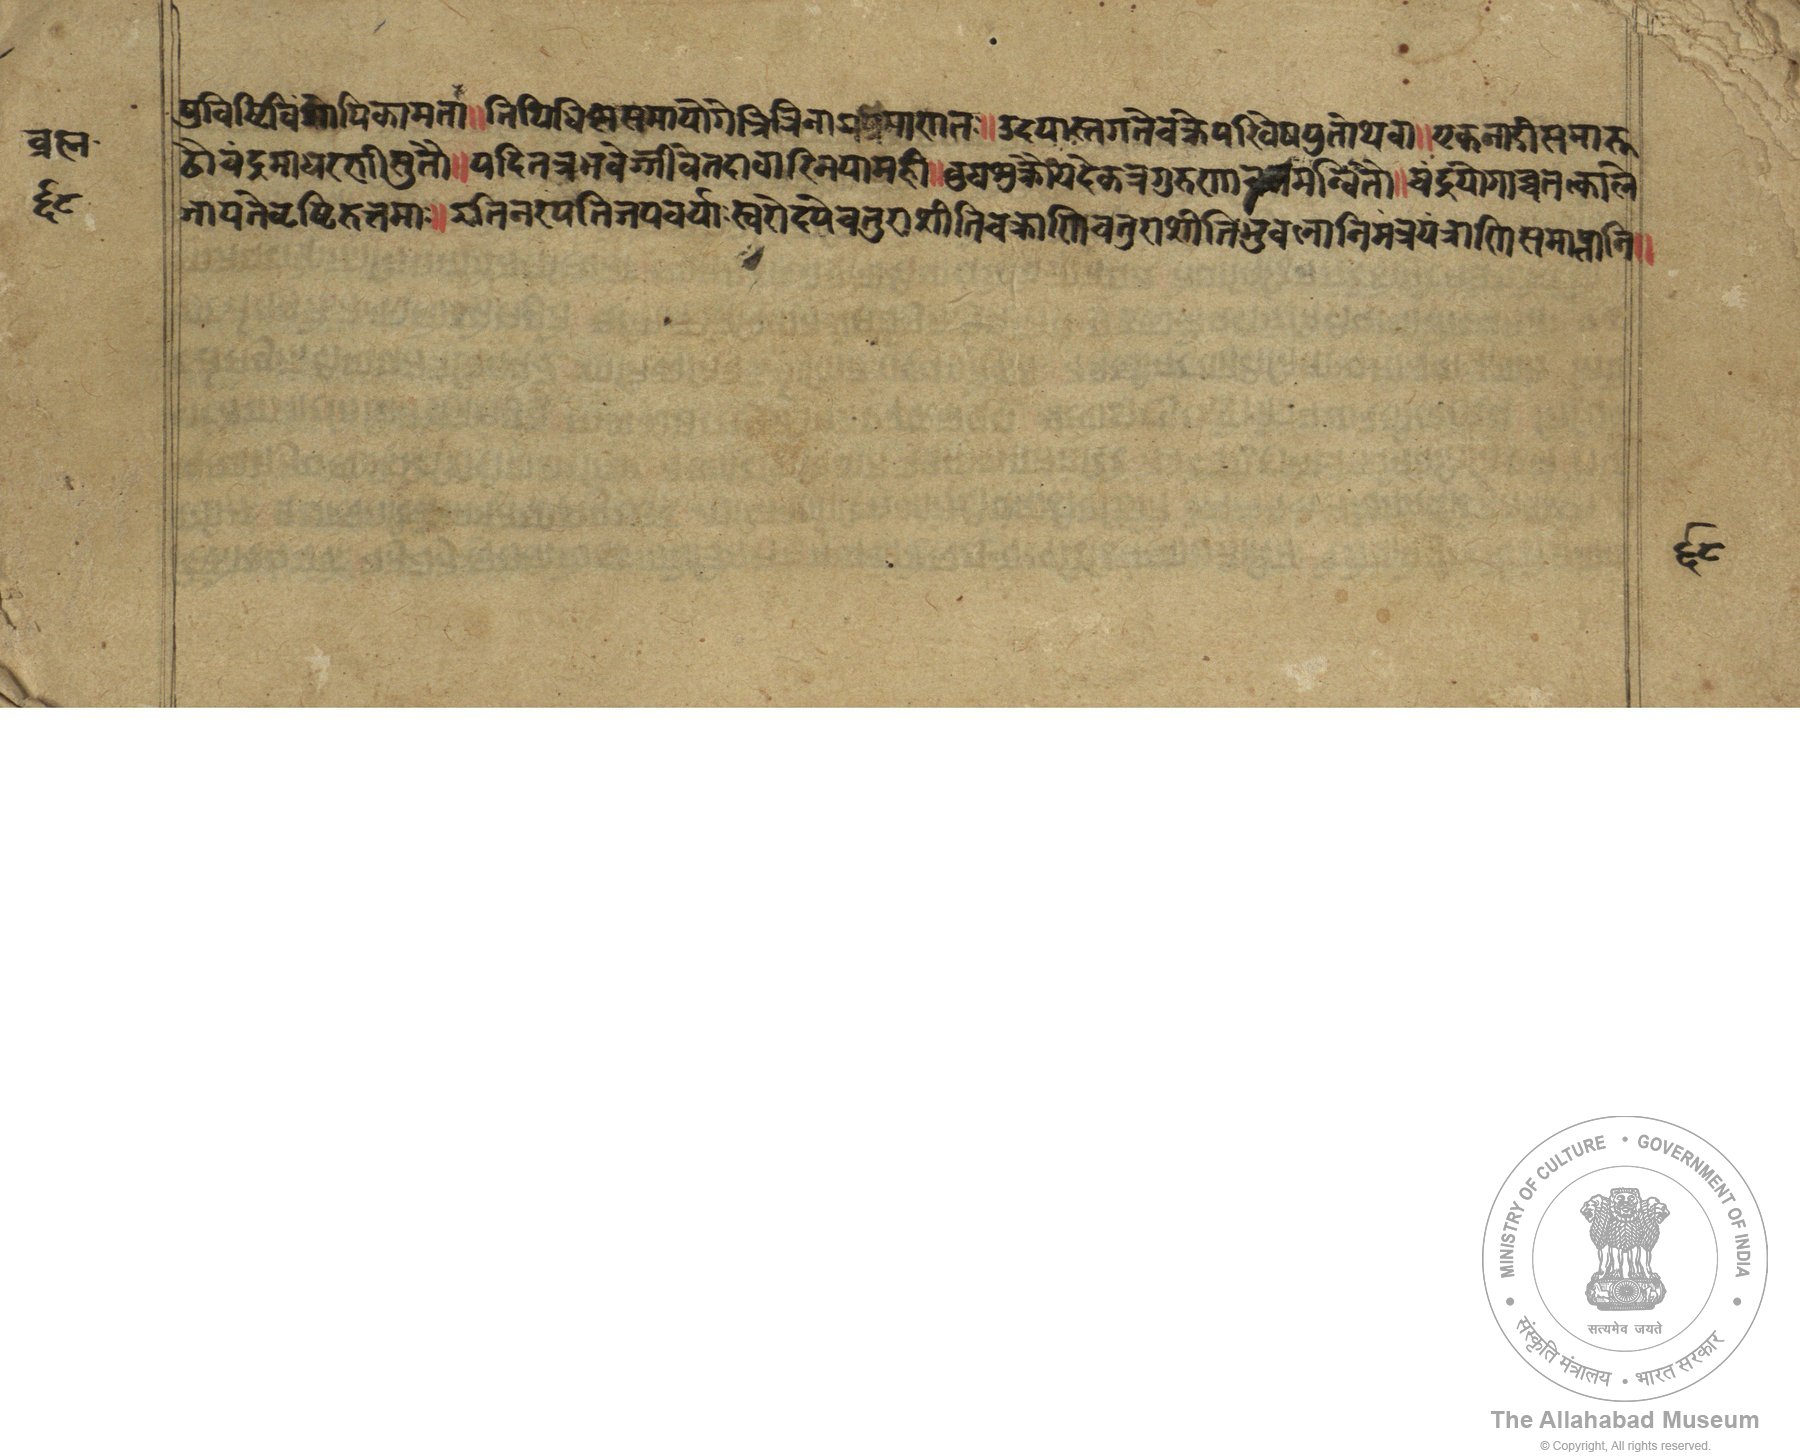 व्रह्म
६८
पुविष्टिविंशोपिकामता॥ तिथिधिस्मसमायोगेत्रित्रिनाग मारातः॥ उदयास्तगतेवक्रेपरिवेषपुतोथवा॥ एकनाडीसमारू
ढौचंद्रमाधरणीसुतौ॥ यदितत्रभवेज्जीवेतदावारिमयामही॥ बुधशुक्रौयदेकत्रगुरुणा समन्वितौ॥ चंद्रयोगाच्चतत्काले
जायतेवृष्टिरुत्तमाः॥ इतिनरपतिजयचर्याःस्वरोदयेचतुराशीतिचक्राणिचतुराशीतिभुवनानिमंत्रयंत्राणिसमाप्तानि॥
६८
MINISTRY OF CULTURE • GOVERNMENT OF INDIA
सत्यमेव जयते
संस्कृति मंत्रालय • भारत सरकार
The Allahabad Museum
© Copyright, All rights reserved.